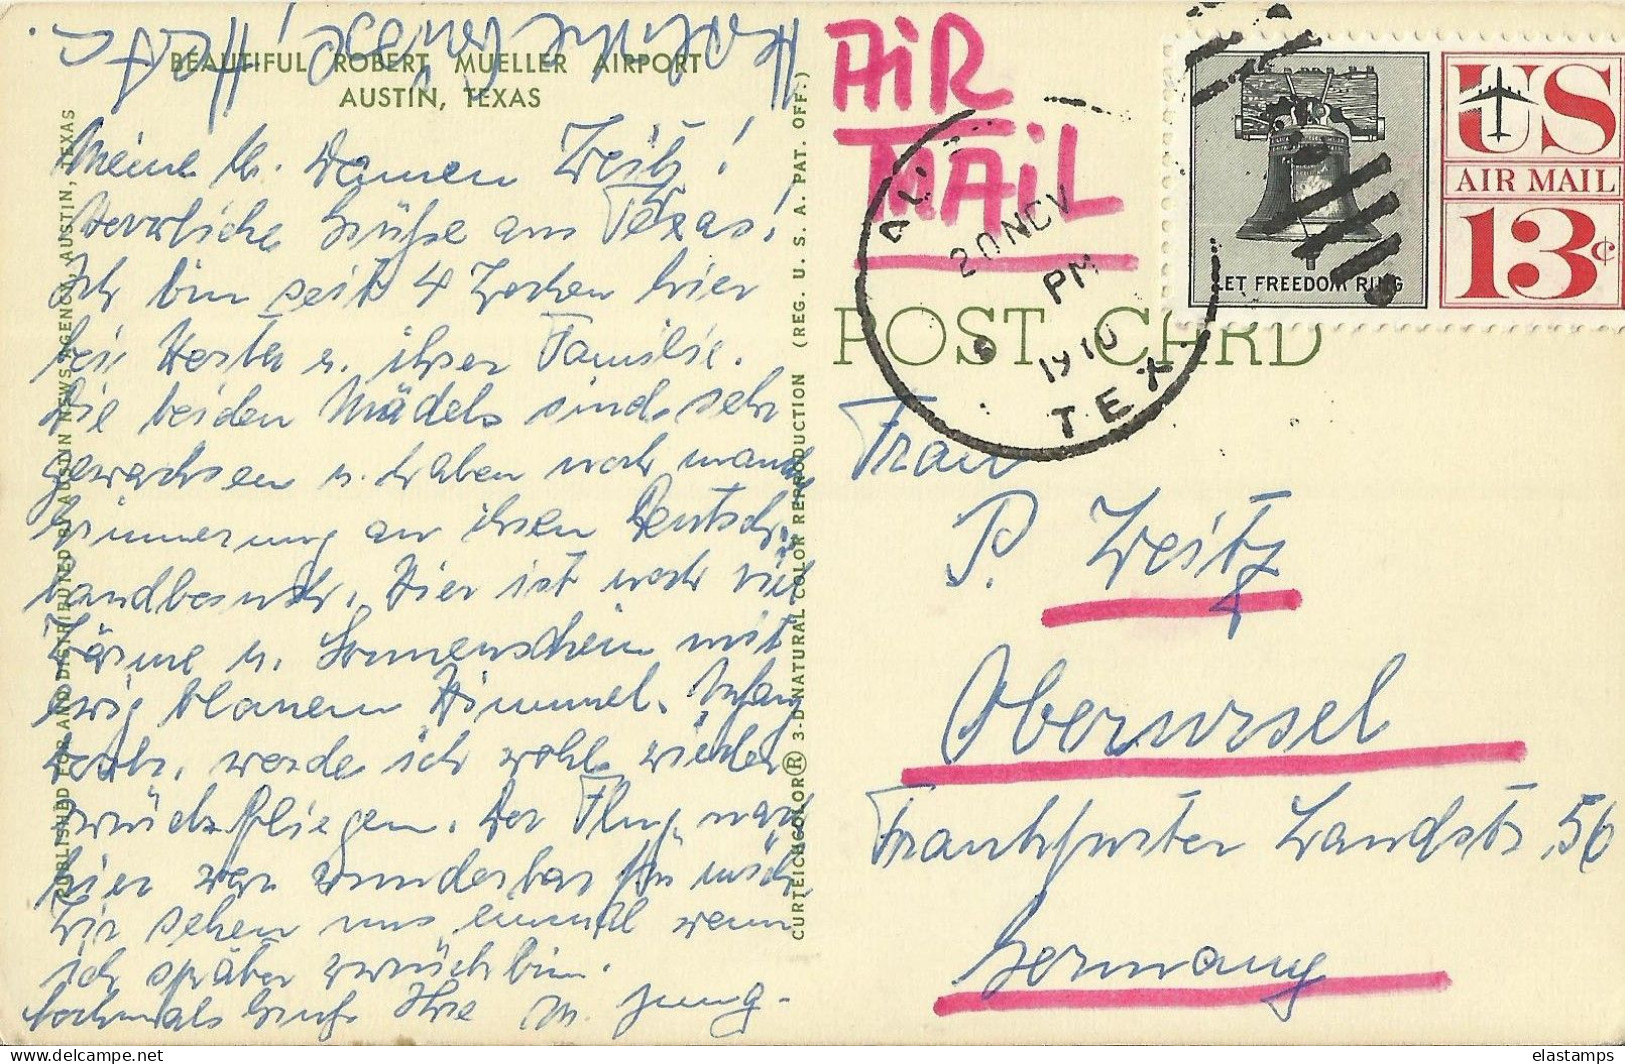 BEAUTIFUL ROBERT MUELLER AIRPORT
AUSTIN, TEXAS
Meine lb. Damen Weitz!
Herzliche Grüße aus Texas!
Ich bin seit 4 Wochen hier
bei Herta u. ihrer Familie.
Die beiden Mädels sind sehr
gewachsen u. haben noch manche
Erinnerung an ihren Deutsch-
landbesuch. Hier ist noch viel
Wärme u. Sonnenschein mit
ewig blauem Himmel. Anfang
werde ich wohl wieder
zurückfliegen. Der Flug nach
hier war wunderbar für mich
Wir sehen uns einmal wenn
ich später zurück bin.
Nochmals Gruß Ihre M. Jung-
Grüße! Herta
PUBLISHED FOR AND DISTRIBUTED BY AUSTIN NEWS AGENCY, AUSTIN, TEXAS
CURTEICHCOLOR® 3-D NATURAL COLOR REPRODUCTION (REG. U. S. A. PAT. OFF.)
AIR
MAIL
POST CARD
20 NOV
PM
TEX
LET FREEDOM RING
US
AIR MAIL
13¢
Frau
P. Weitz
Oberursel
Frankfurter Landstr. 56
Germany
delcampe.net
elastamps